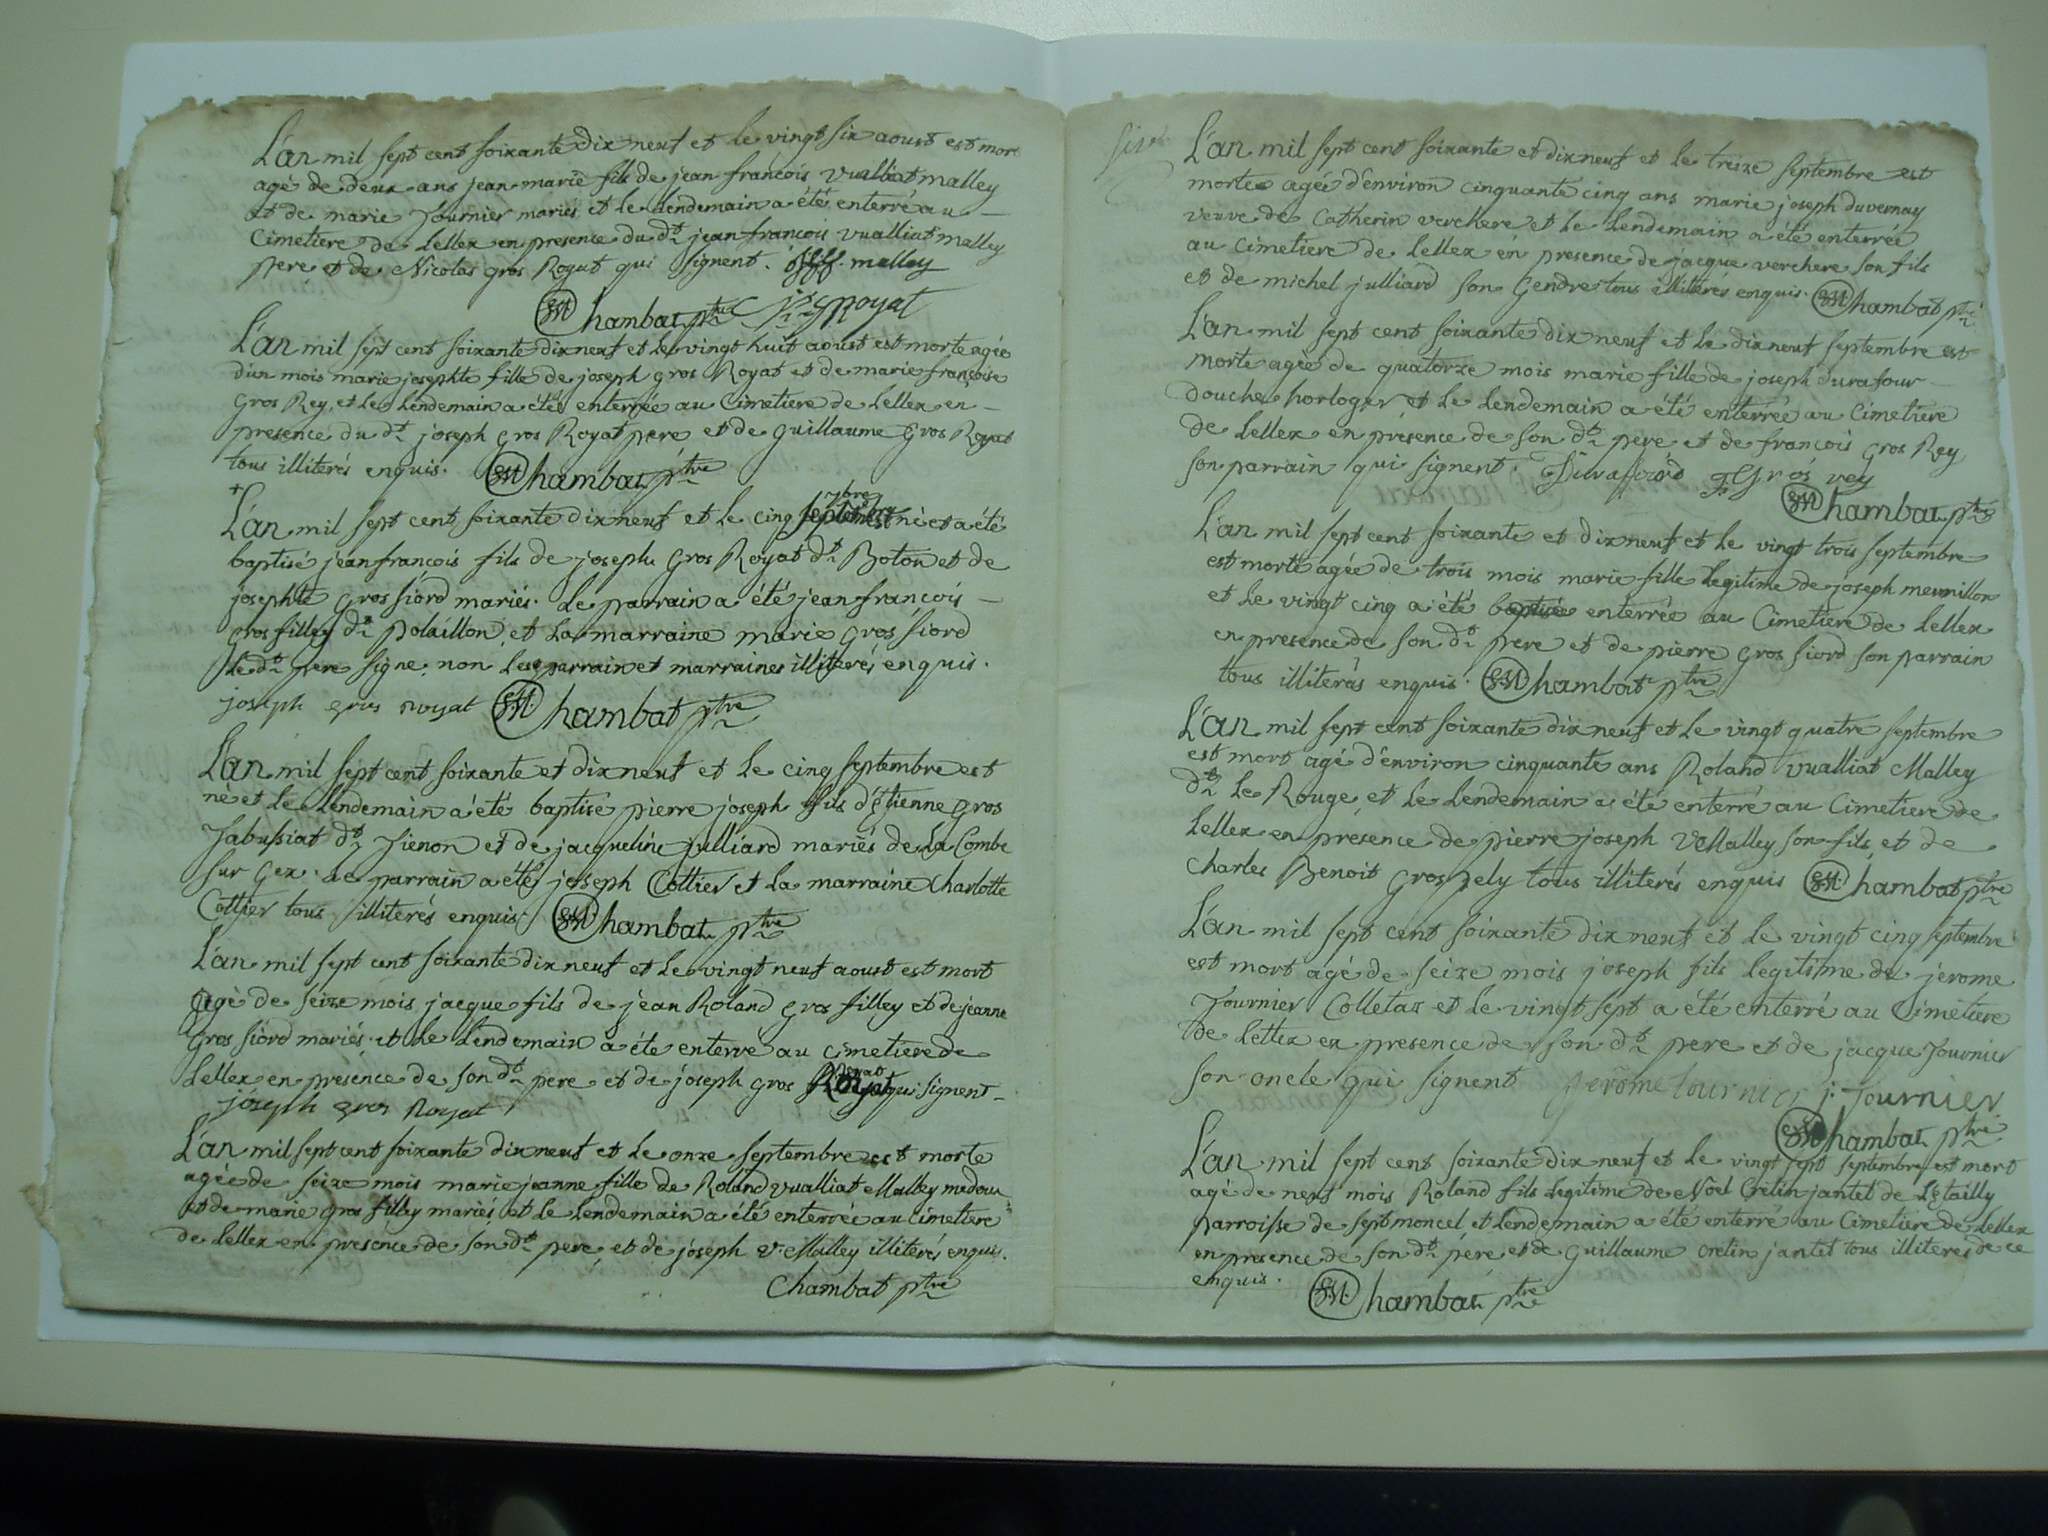 L'an mil sept cent soixante dix neuf et le vingt six aoust est mort
agé de deux ans jean marie fils de jean françois vualliat malley
et de marie Fournier mariés et le lendemain a été enterré au
Cimetiere de Lellex en presence du dt. jean françois vualliat malley
pere et de Nicolas gros Royat qui signent. malley
Chambat ptre Royat
L'an mil sept cent soixante dix neuf et le vingt huit aoust est morte agée
d'un mois marie josephte fille de joseph gros Royat et de marie françoise
Gros Rey, et le lendemain a été enterrée au Cimetiere de Lellex en
presence du dt. joseph gros Royat pere et de Guillaume Gros Royat
tous illiterés enquis. Chambat ptre
+
L'an mil sept cent soixante dix neuf et le cinq 7bre est né et a été
baptisé jean françois fils de joseph Gros Royat dt. Boton et de
josephte Gros fiord mariés. Le parrain a été jean françois
gros filley dt. Polaillon et la marraine marie Gros fiord
Le dt. pere signe non les parrain et marraines illiterés enquis.
joseph gros royat Chambat ptre
L'an mil sept cent soixante et dix neuf et le cinq septembre est
né et le lendemain a été baptisé pierre joseph fils d'Etienne Gros
Tabussiat dt. Tienon et de jacqueline julliard mariés de La Combe
sur Gex. Le parrain a été joseph Cottier et la marraine Charlotte
Cottier tous illiterés enquis. Chambat ptre
L'an mil sept cent soixante dix neuf et le vingt neuf aoust est mort
agé de seize mois jacque fils de jean Roland gros filley et de jeanne
Gros fiord mariés. et le lendemain a éte enterré au cimetiere de
Lellex en presence de son dt. pere et de joseph gros Royat qui signent
joseph gros Royat
L'an mil sept cent soixante dix neuf et le onze septembre est morte
agée de seize mois marie jeanne fille de Roland vualliat Malley
et de marie gros filley mariés et le lendemain a été enterrée au Cimetiere
de Lellex en presence de son dt. pere, et de joseph v. Malley illiterés enquis.
Chambat ptre
L'an mil sept cent soixante et dix neuf et le treize septembre est
morte agée d'environ cinquante cinq ans marie joseph duvernay
veuve de Catherin verchere et le lendemain a été enterrée
au Cimetiere de Lellex en presence de jacque verchere son fils
et de michel julliard son Gendre tous illiterés enquis. Chambat ptre
L'an mil sept cent soixante dix neuf et le dix neuf septembre est
morte agée de quatorze mois marie fille de joseph durafour
douche horloger et le lendemain a été enterrée au Cimetiere
de Lellex en présence de son dt. pere et de françois gros Rey
son parrain qui signent. F Gros rey
Chambat ptre
L'an mil sept cent soixante et dix neuf et le vingt trois septembre
est morte agée de trois mois marie fille legitime de joseph mermillon
et le vingt cinq a été enterrée au Cimetiere de Lellex
en presence de son dt. pere et de pierre gros fiord son parrain
tous illiterés enquis. Chambat ptre
L'an mil sept cent soixante dix neuf et le vingt quatre septembre
est mort agé d'environ cinquante ans Roland vualliat Malley
dt. Le Rouge et le lendemain a été enterré au Cimetiere de
Lellex en présence de pierre joseph v Malley son fils et de
Charles Benoit Gros pely tous illiterés enquis Chambat ptre
L'an mil sept cent soixante dix neuf et le vingt cinq septembre
est mort agé de seize mois joseph fils legitime de jerome
Fournier Colletaz et le vingt sept a été enterré au Cimetiere
de Lellex en presence de son dt. pere et de jacque Fournier
son oncle qui signent jerôme tournier j. fournier
Chambat ptre
L'an mil sept cent soixante dix neuf et le vingt sept septembre est mort
agé de neuf mois Roland fils legitime de Noel Cretin jantet de
parroisse de septmoncel et lendemain a été enterré au Cimetiere de Lellex
en presence de son dt. pere, et de Guillaume cretin jantet tous illiteres de ce
enquis. Chambat ptre